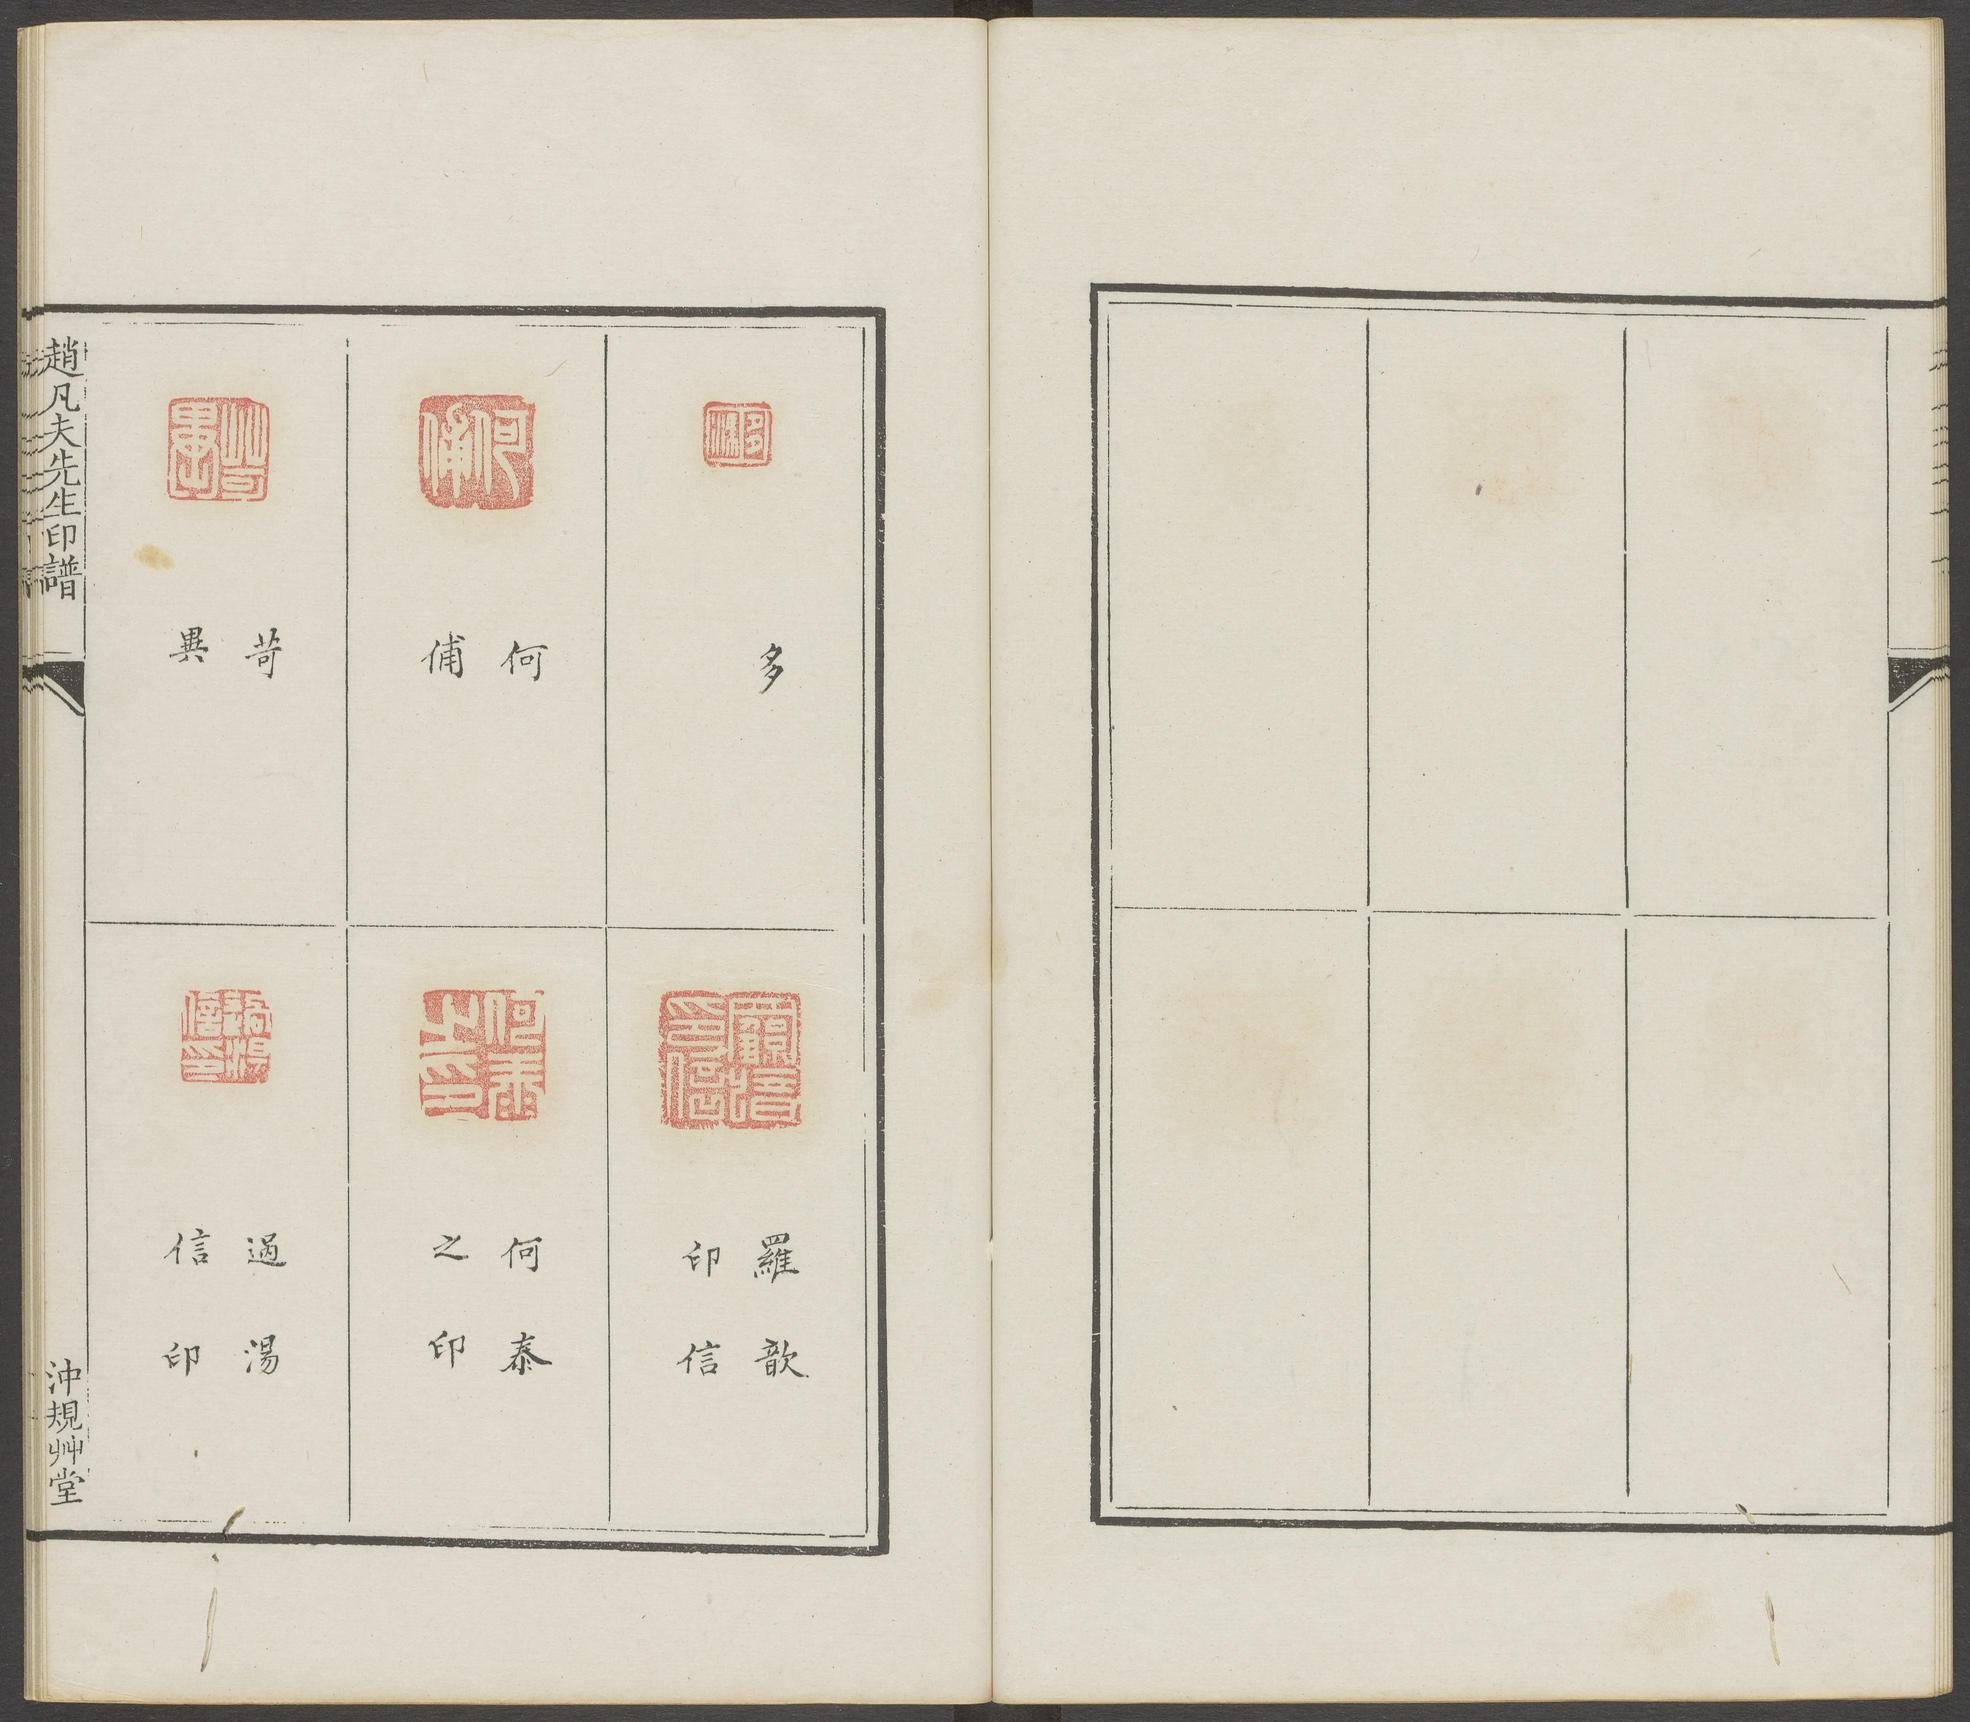 多
羅歆
印信
何
俌
何泰
之印
苛
異
過湯
信印
趙凡夫先生印譜
沖規艸堂